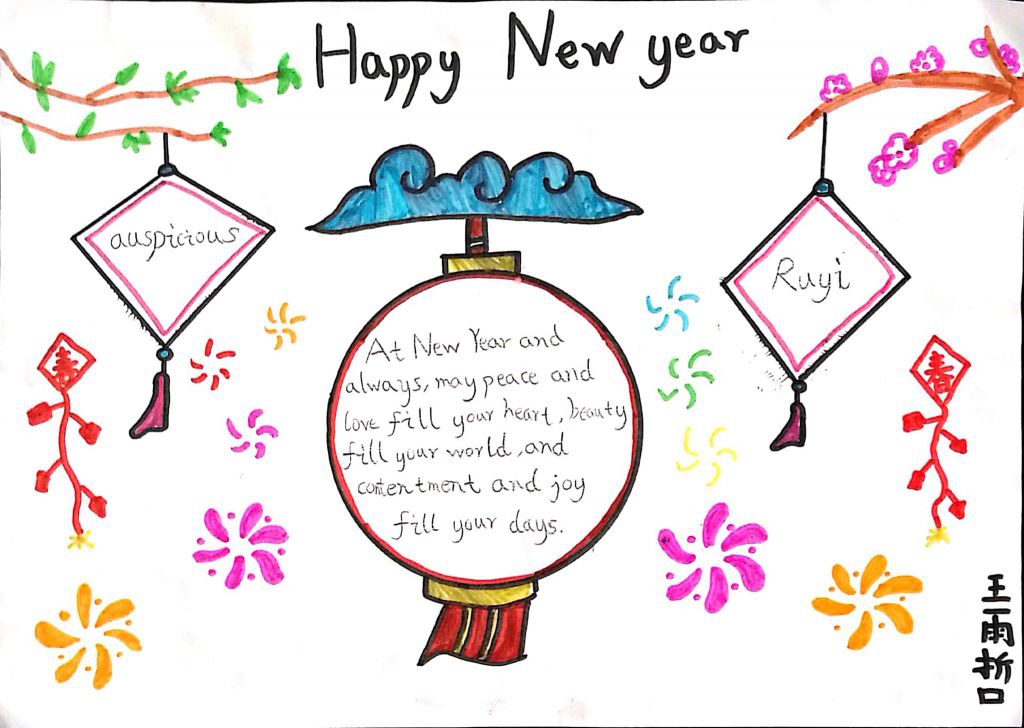 Happy New year
auspicious
Ruyi
春
春
At New Year and
always, may peace and
love fill your heart, beauty
fill your world, and
contentment and joy
fill your days.
王一雨哲